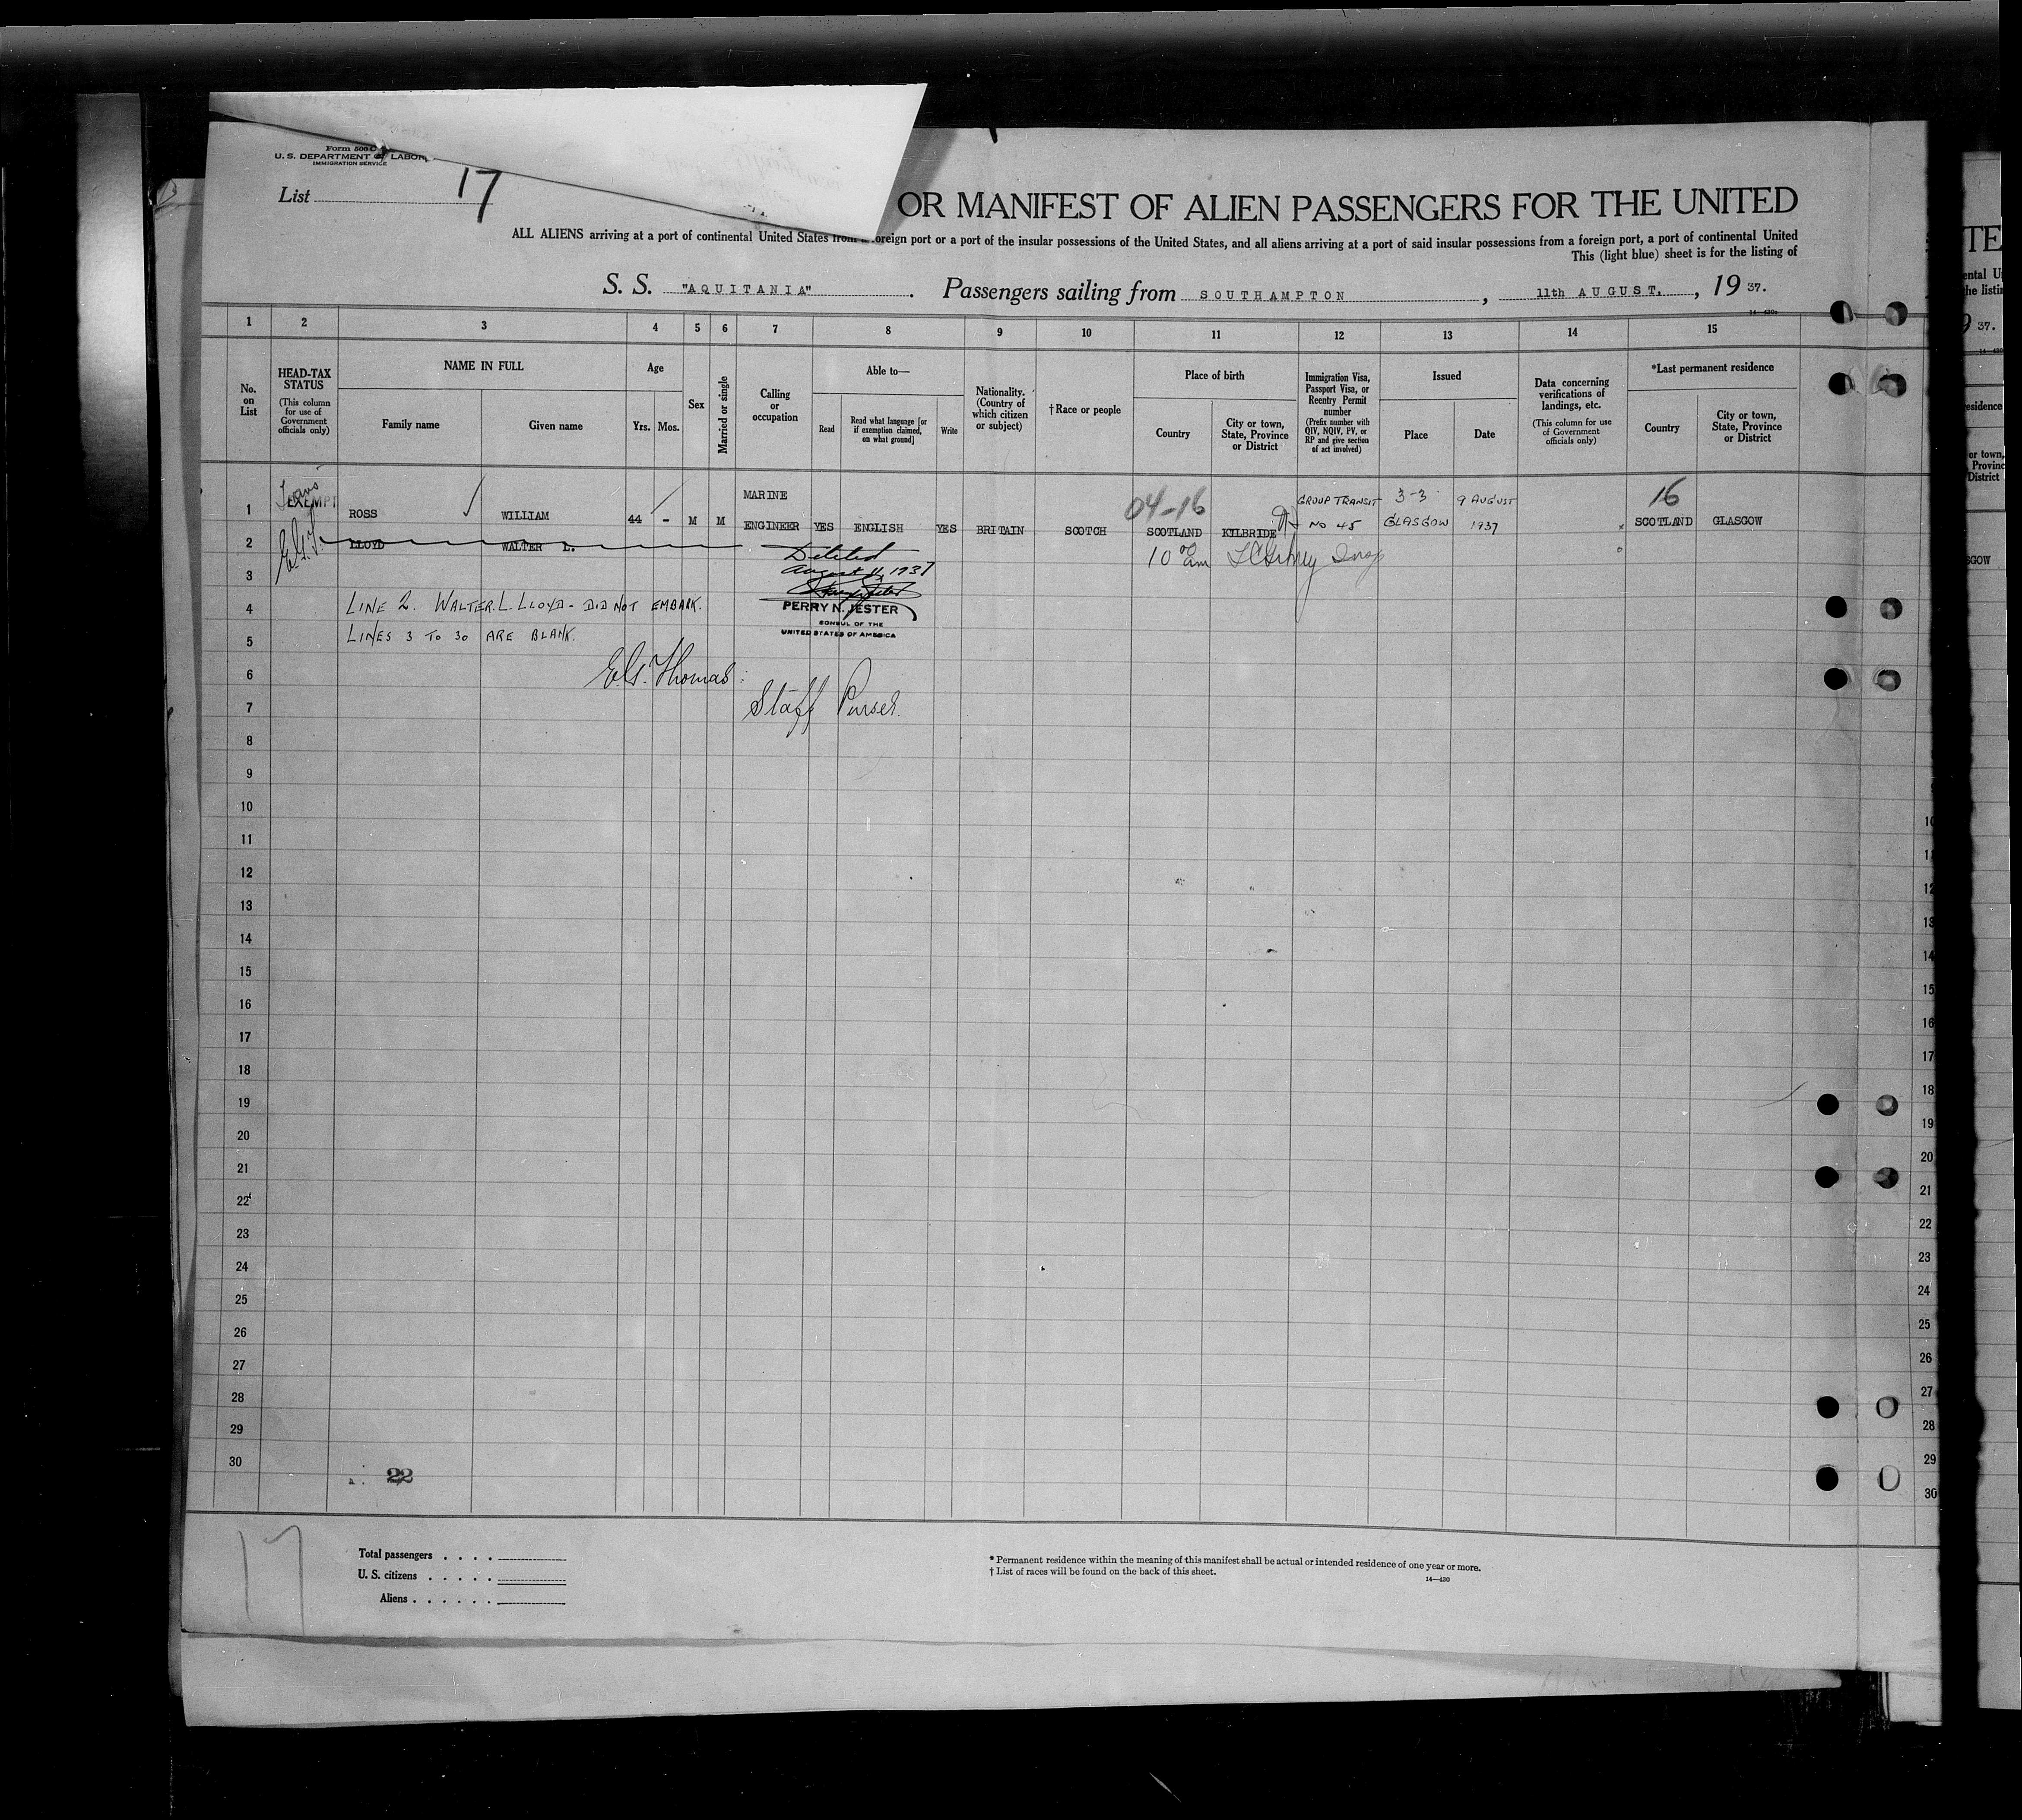 Form 500 C
U. S. DEPARTMENT OF LABOR
IMMIGRATION SERVICE
List 17
OR MANIFEST OF ALIEN PASSENGERS FOR THE UNITED
ALL ALIENS arriving at a port of continental United States from a foreign port or a port of the insular possessions of the United States, and all aliens arriving at a port of said insular possessions from a foreign port, a port of continental United
This (light blue) sheet is for the listing of
S. S. "AQUITANIA". Passengers sailing from SOUTHAMPTON, 11th AUGUST., 19 37.
14—430
1 2 3 4 5 6 7 8 9 10 11 12 13 14 15
No. on List
HEAD-TAX STATUS
(This column for use of Government officials only)
NAME IN FULL
Family name
Given name
Age
Yrs. Mos.
Sex
Married or single
Calling or occupation
Able to—
Read
Read what language [or if exemption claimed, on what ground]
Write
Nationality. (Country of which citizen or subject)
†Race or people
Place of birth
Country
City or town, State, Province or District
Immigration Visa, Passport Visa, or Reentry Permit number
(Prefix number with QIV, NQIV, PV, or RP and give section of act involved)
Issued
Place
Date
Data concerning verifications of landings, etc.
(This column for use of Government officials only)
*Last permanent residence
Country
City or town, State, Province or District
1 Trans EXEMPT ROSS WILLIAM 44 - M M MARINE ENGINEER YES ENGLISH YES BRITAIN SCOTCH 04-16 SCOTLAND KILBRIDE GROUP TRANSIT NO 45 3-3 GLASGOW 9 AUGUST 1937 16 SCOTLAND GLASGOW
E.G.T.
2 LLOYD WALTER L. Deleted
10 00 am
3 August 11, 1937
4 LINE 2. WALTER. L. LLOYD - DID NOT EMBARK.
PERRY N. JESTER
CONSUL OF THE
UNITED STATES OF AMERICA
5 LINES 3 TO 30 ARE BLANK.
6 E.G. Thomas
7 Staff Purser.
8
9
10
11
12
13
14
15
16
17
18
19
20
21
22
23
24
25
26
27
28
29
30
22
17
Total passengers . . . .
U. S. citizens . . . . .
Aliens . . . . . .
* Permanent residence within the meaning of this manifest shall be actual or intended residence of one year or more.
† List of races will be found on the back of this sheet.
14—430
TE
ental U
he listin
37.
14—430
esidence
or town,
Provinc
District
SGOW
10
11
12
13
14
15
16
17
18
19
20
21
22
23
24
25
26
27
28
29
30